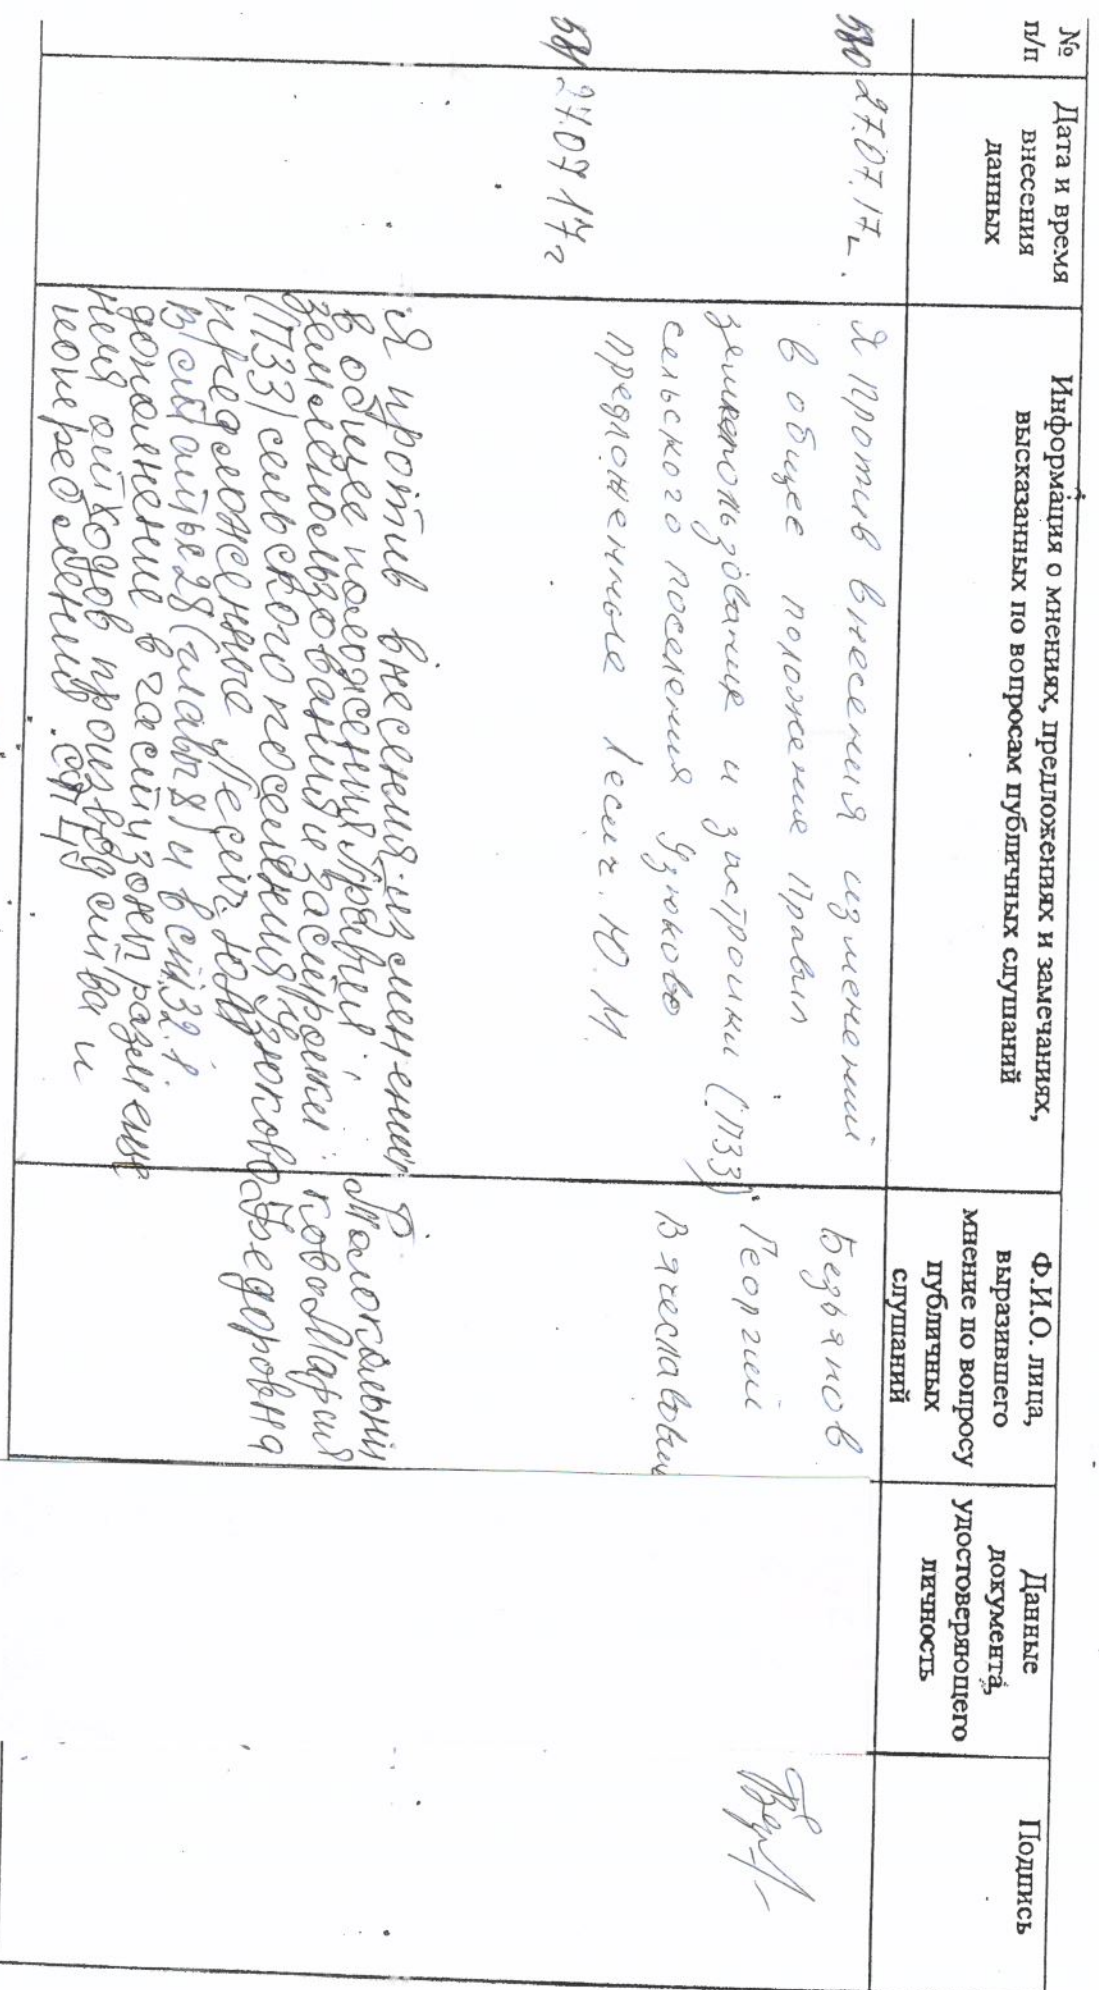 №
п/п
Дата и время
внесения
данных
Информация о мнениях, предложениях и замечаниях,
высказанных по вопросам публичных слушаний
Ф.И.О. лица,
выразившего
мнение по вопросу
публичных
слушаний
Данные
документа,
удостоверяющего
личность
Подпись
580
27.07.17г.
Я против внесения изменений
в общее положение Правил
землепользование и застройки (ПЗЗ)
сельского поселения Узюково
предложенные Лесич. Ю. М.
Безьянов
Георгий
Вячеславович
581
27.07 17г
Я против внесения изменений
в общее положения Правил
землепользования и застройки
(ПЗЗ) сельского поселения Узюково
предложенные Лесич. Ю.М
в статье 28 (главы 8) и в ст. 32.1.
дополнение в части зоны размеще
ния отходов производства и
потребления СП4
Мария
Федоровна